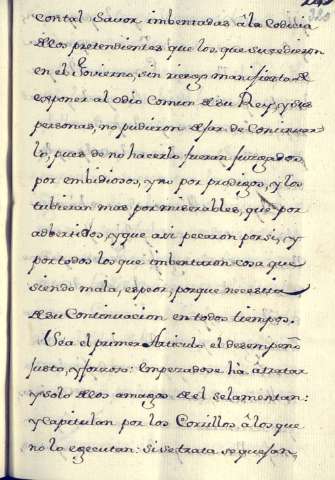 contal Savor imbentadas âla Codicia
delos pretendientes que los que sucedieron
en el Govierno, sin riesgo manifiesto de
exponer al odio Comun de su Rey, y sus
personas, no pudieron dejar de Continuar-
lo, pues de no hacerlo fueran juzgados
por embidiosos, y no por prodigos, y los
tubieran mas por miserables, que por
adbertidos, y que asi pecaron por si, y
por todos los que imbentaron cosa que
siendo mala, es peor, porque necesita
de su Continuacion en todos tiempos.
Sea el primer Articulo el desempeño
justo, y forzoso: Imperadose ha âtratar
y solo delos amagos del selamentan:
y Capitulan por los Corrillos âlos que
no lo egecutan: si se trata se quejan,